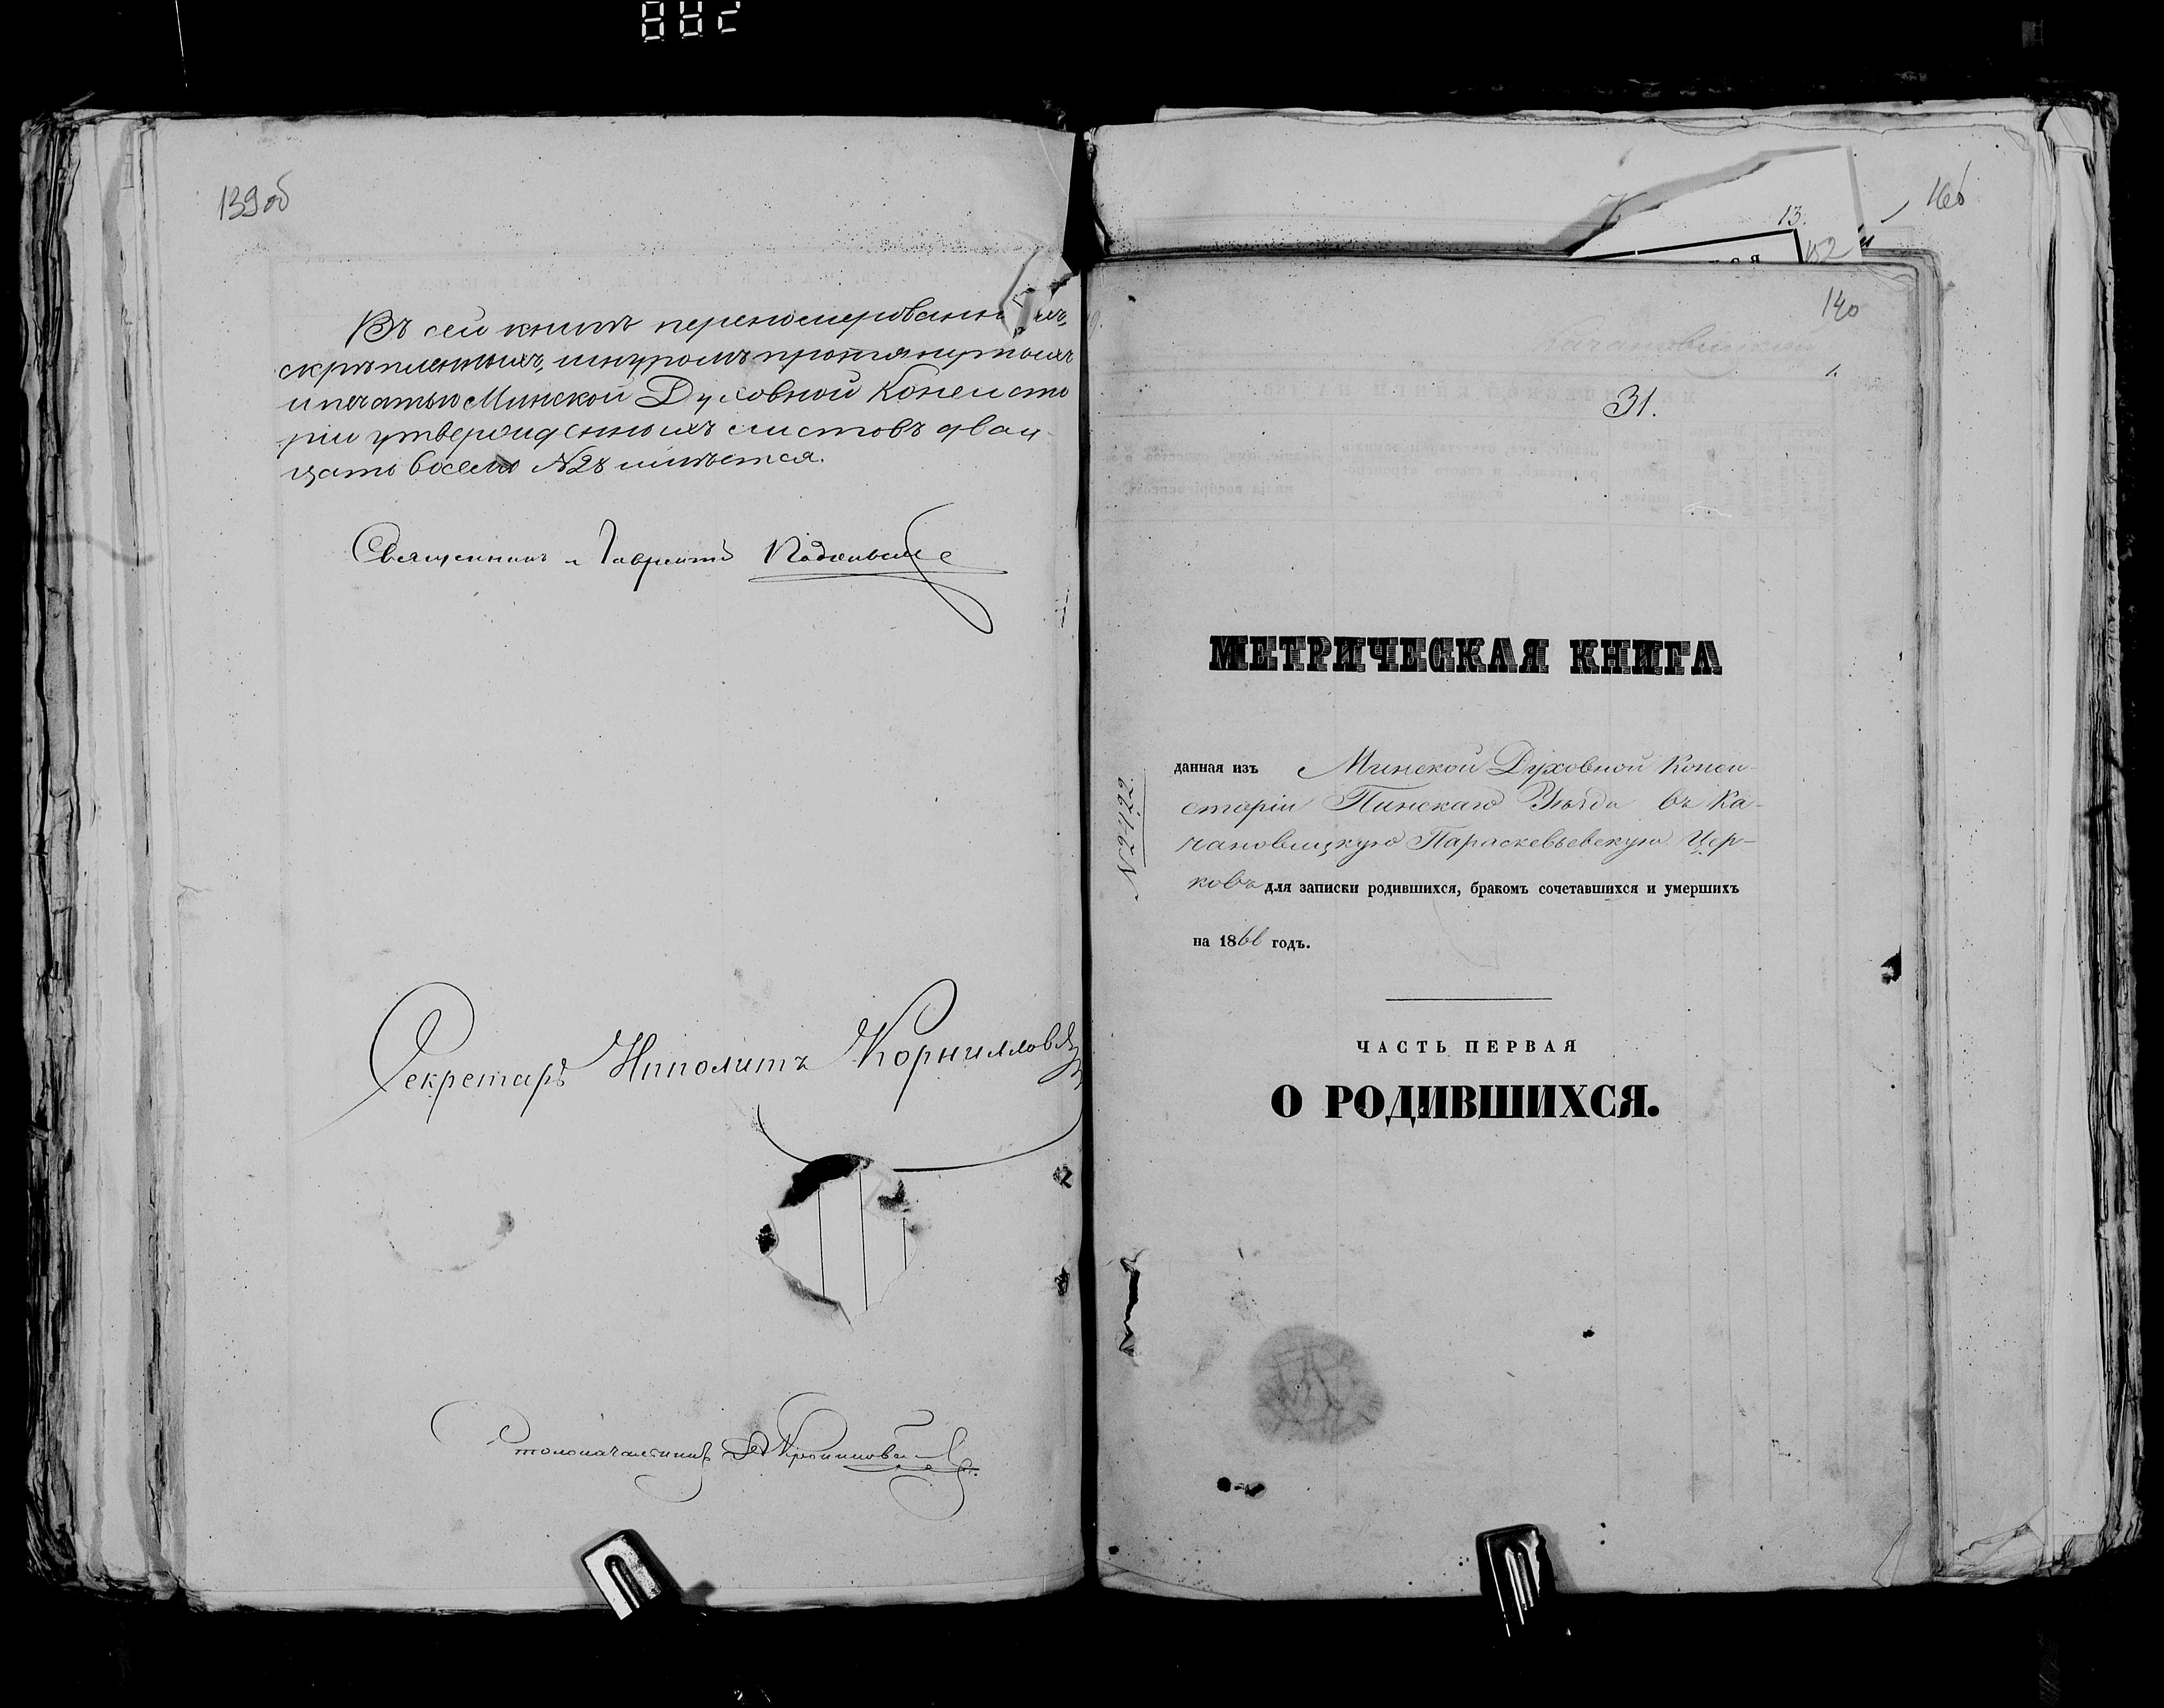 139 об
Въ сей книгѣ перенумерованныхъ,
скрѣпленныхъ, шнуромъ протянутыхъ
и печатью Минской Духовной Консисто
ріи утвержденныхъ листовъ двад-
цать восемь № 28 имѣется.
Священникъ Лаврентій
Секретарь Ипполитъ Корнилловъ
Столоначальникъ
13.
152
140
1.
31.
МЕТРИЧЕСКАЯ КНИГА
данная изъ Минской Духовной Конси-
сторіи Пинскаго Уѣзда въ Ка-
чановицкую Параскевьевскую Цер-
ковь для записки родившихся, бракомъ сочетавшихся и умершихъ
на 1866 годъ.
№ 2422
ЧАСТЬ ПЕРВАЯ
О РОДИВШИХСЯ.